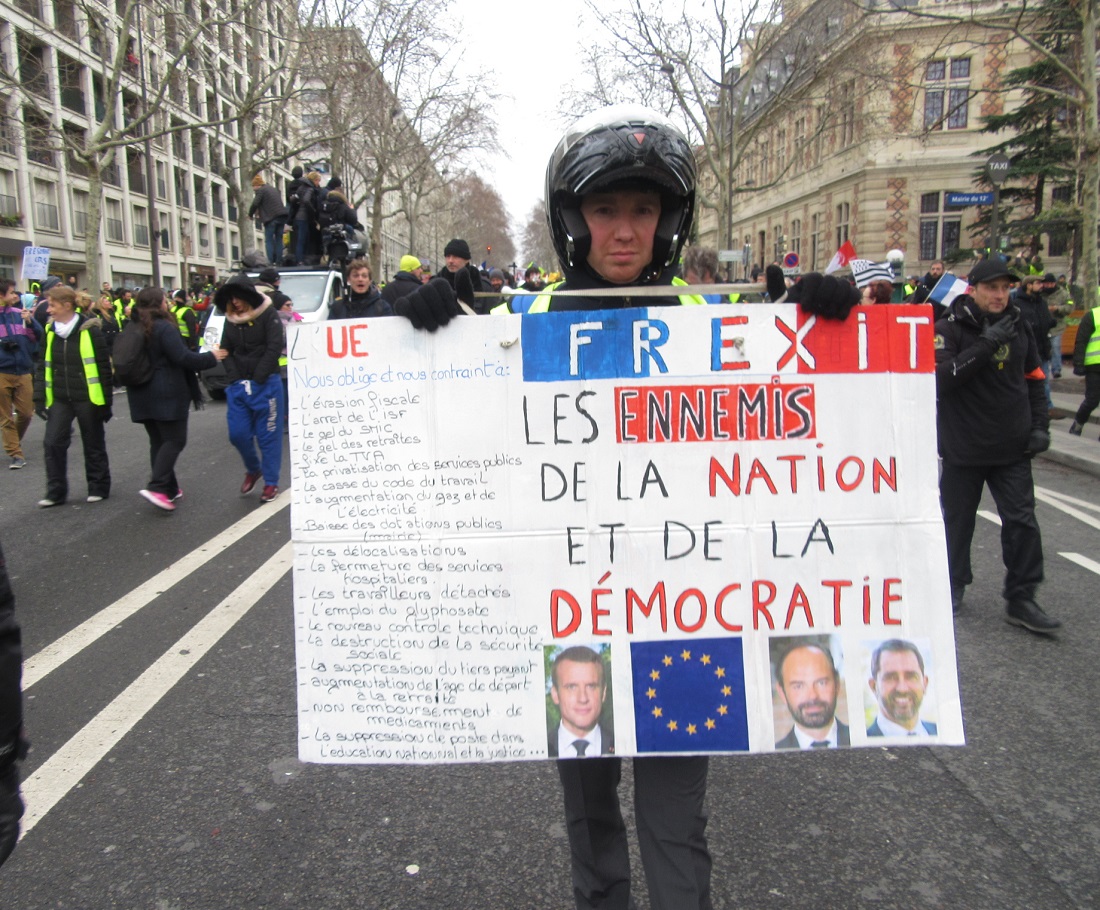 TAXI
Mairie du 12e
L'UE
Nous oblige et nous contraint à:
- L'évasion fiscale
- L'arret de l'ISF
- Le gel du SMIC
- le gel des retraites
- fixe la TVA
- La privatisation des services publics
- La casse du code du travail
- L'augmentation du gaz et de
l'électricité
- Baisse des dotations publics
(mairie)
- Les délocalisations
- La fermeture des services
hospitaliers.
- Les travailleurs détachés
- L'emploi du glyphosate
- Le nouveau controle technique
- La destruction de la sécurité
sociale
- La suppression du tiers payant
- augmentation de l'age de départ
à la retraite
- non remboursement de
medicaments
- La suppression de poste dans
l'education nationnal et la justice...
FREXIT
LES ENNEMIS
DE LA NATION
ET DE LA
DÉMOCRATIE